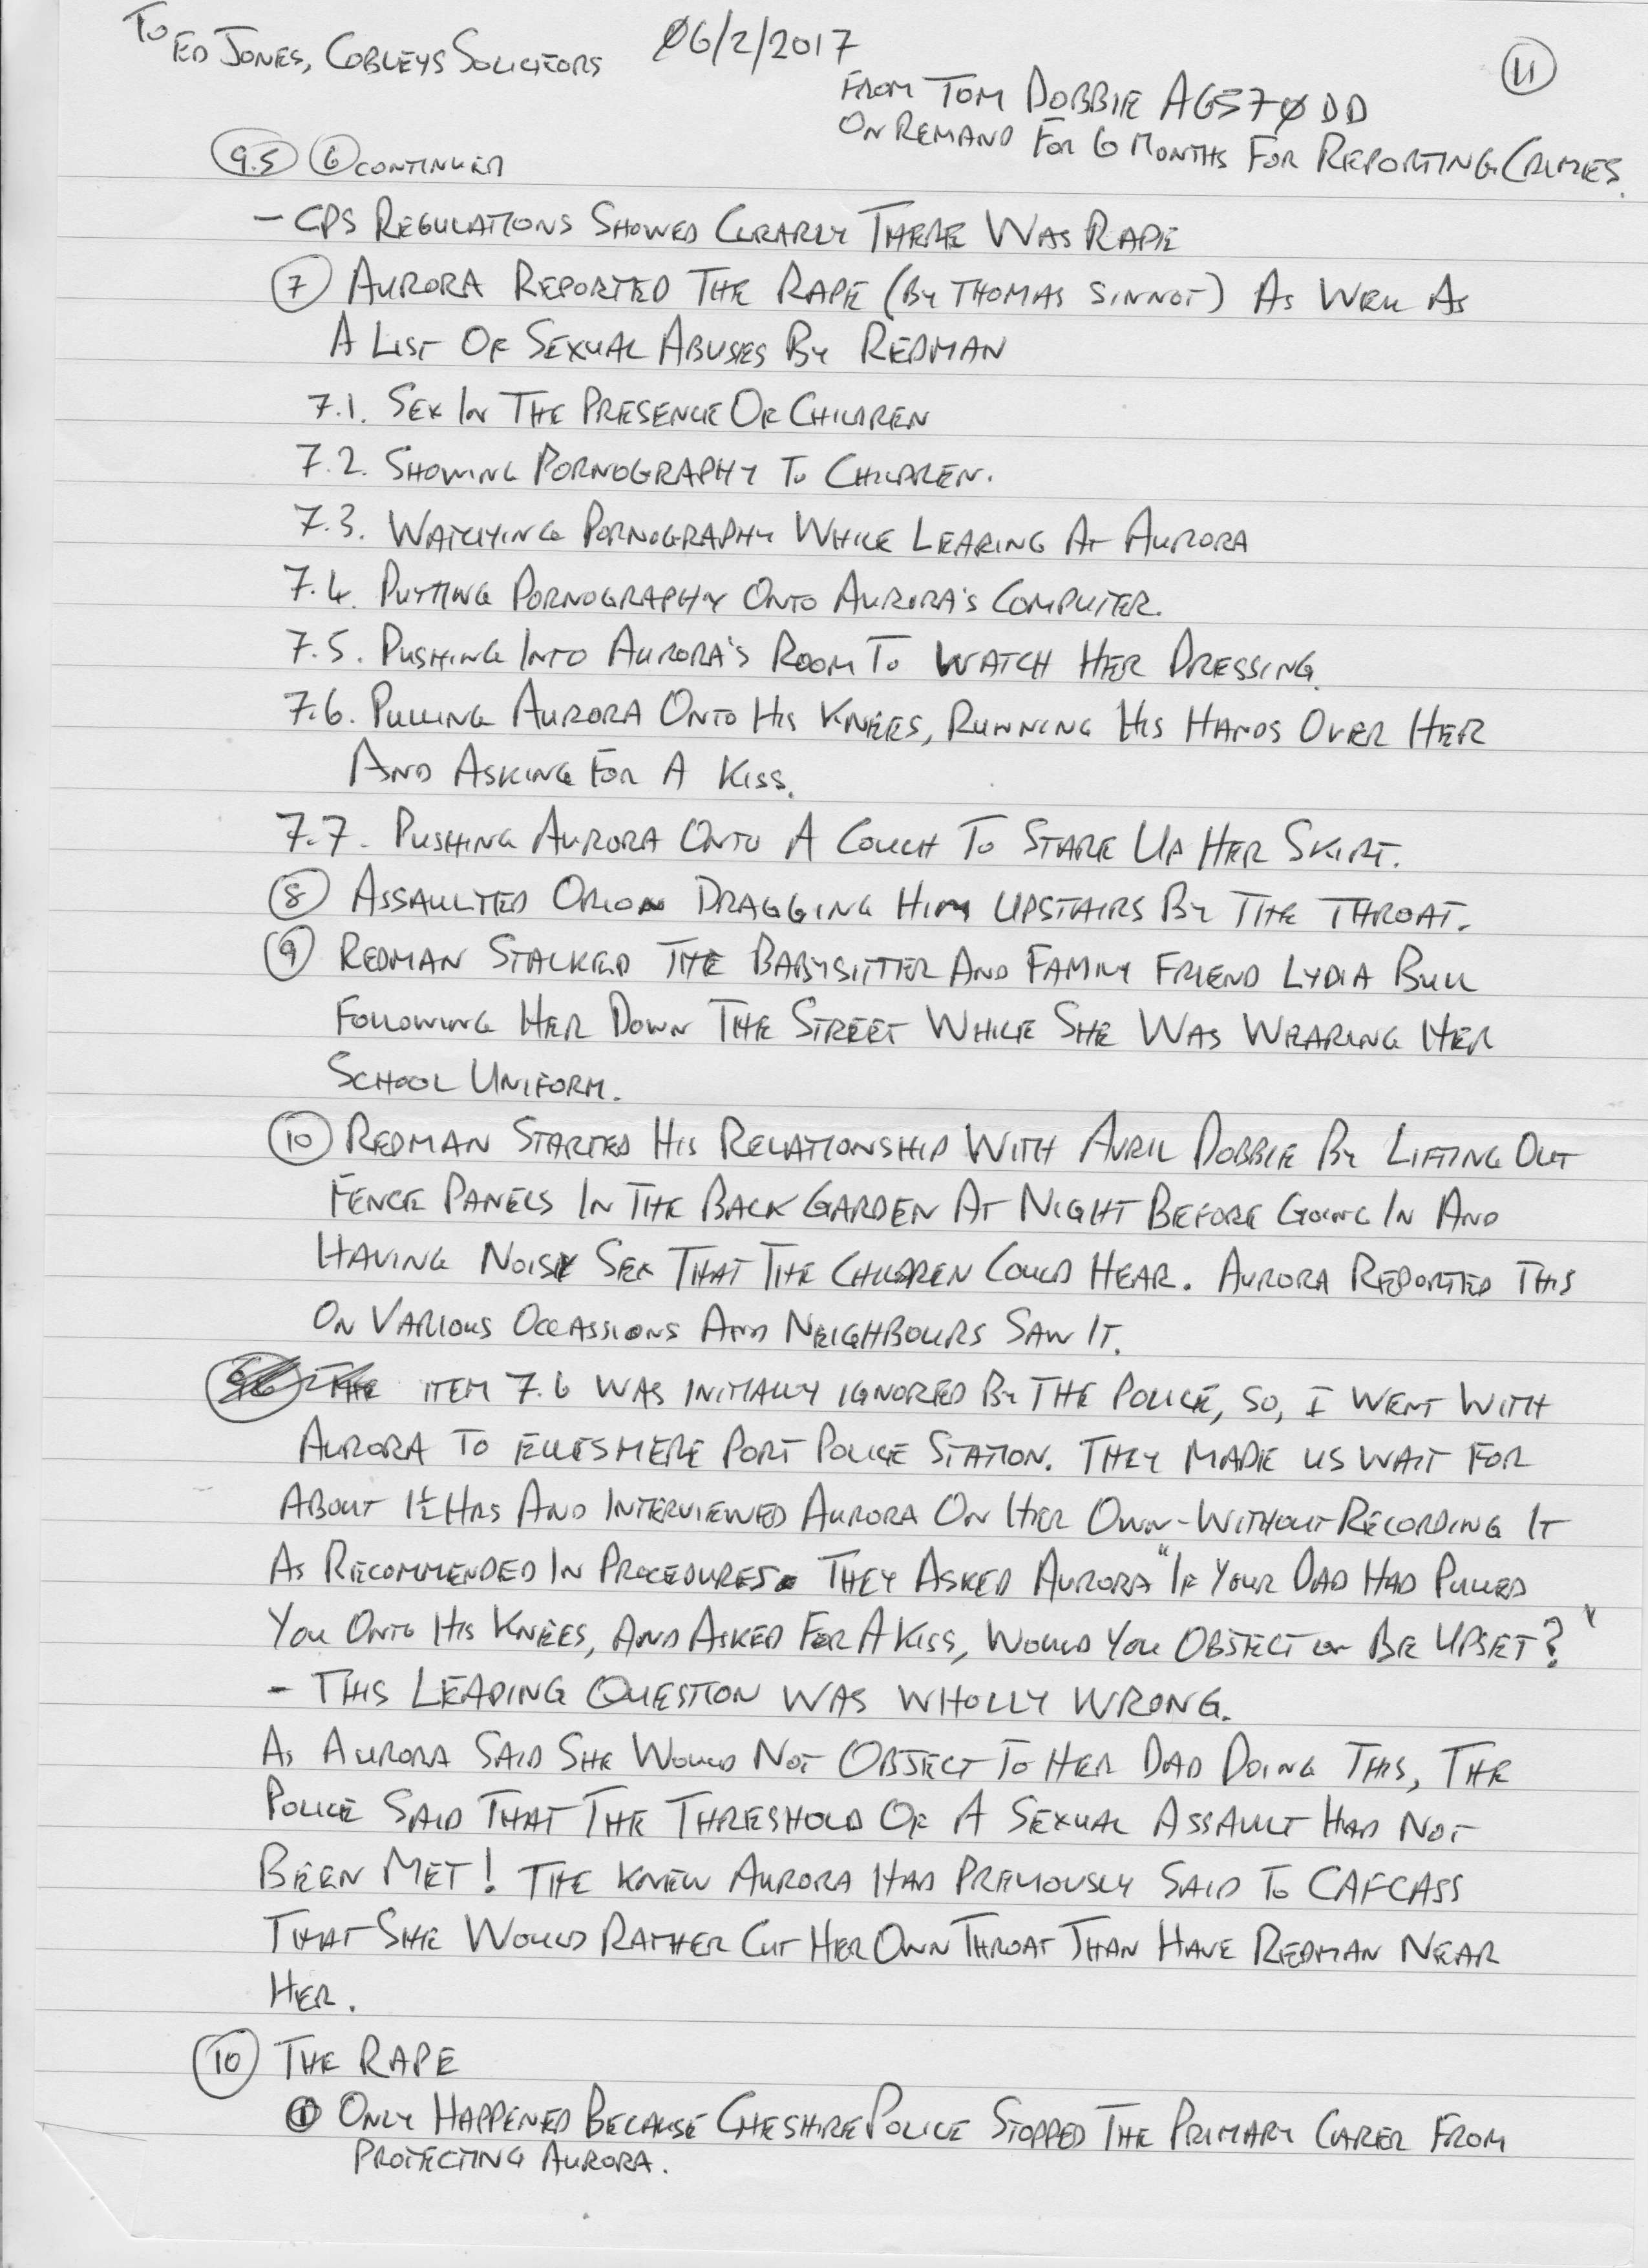 To
ED JONES, COBLEYS SOLICITORS 06/2/2017
11
FROM TOM DOBBIE A6570DD
ON REMAND FOR 6 MONTHS FOR REPORTING CRIMES.
9.5 6 CONTINUED
- CPS REGULATIONS SHOWED CLEARLY THERE WAS RAPE
7 AURORA REPORTED THE RAPE (BY THOMAS SINNOT) AS WELL AS
A LIST OF SEXUAL ABUSES BY REDMAN
7.1. SEX IN THE PRESENCE OF CHILDREN
7.2. SHOWING PORNOGRAPHY TO CHILDREN.
7.3. WATCHING PORNOGRAPHY WHILE LEARING AT AURORA
7.4. PUTTING PORNOGRAPHY ONTO AURORA'S COMPUTER.
7.5. PUSHING INTO AURORA'S ROOM TO WATCH HER DRESSING.
7.6. PULLING AURORA ONTO HIS KNEES, RUNNING HIS HANDS OVER HER
AND ASKING FOR A KISS.
7.7. PUSHING AURORA ONTO A COUCH TO STARE UP HER SKIRT.
8 ASSAULTED ORION DRAGGING HIM UPSTAIRS BY THE THROAT.
9 REDMAN STALKED THE BABYSITTER AND FAMILY FRIEND LYDIA BULL
FOLLOWING HER DOWN THE STREET WHILE SHE WAS WEARING HER
SCHOOL UNIFORM.
10 REDMAN STARTED HIS RELATIONSHIP WITH AVRIL DOBBIE BY LIFTING OUT
FENCE PANELS IN THE BACK GARDEN AT NIGHT BEFORE GOING IN AND
HAVING NOISY SEX THAT THE CHILDREN COULD HEAR. AURORA REPORTED THIS
ON VARIOUS OCCASSIONS AND NEIGHBOURS SAW IT.
THE ITEM 7.6 WAS INITIALLY IGNORED BY THE POLICE, SO, I WENT WITH
AURORA TO ELLESMERE PORT POLICE STATION. THEY MADE US WAIT FOR
ABOUT 1½ HRS AND INTERVIEWED AURORA ON HER OWN - WITHOUT RECORDING IT
AS RECOMMENDED IN PROCEDURES. THEY ASKED AURORA "IF YOUR DAD HAD PULLED
YOU ONTO HIS KNEES, AND ASKED FOR A KISS, WOULD YOU OBJECT OR BE UPSET?"
- THIS LEADING QUESTION WAS WHOLLY WRONG.
AS AURORA SAID SHE WOULD NOT OBJECT TO HER DAD DOING THIS, THE
POLICE SAID THAT THE THRESHOLD OF A SEXUAL ASSAULT HAD NOT
BEEN MET! THE KNEW AURORA HAD PREVIOUSLY SAID TO CAFCASS
THAT SHE WOULD RATHER CUT HER OWN THROAT THAN HAVE REDMAN NEAR
HER.
10 THE RAPE
1 ONLY HAPPENED BECAUSE CHESHIRE POLICE STOPPED THE PRIMARY CARER FROM
PROTECTING AURORA.